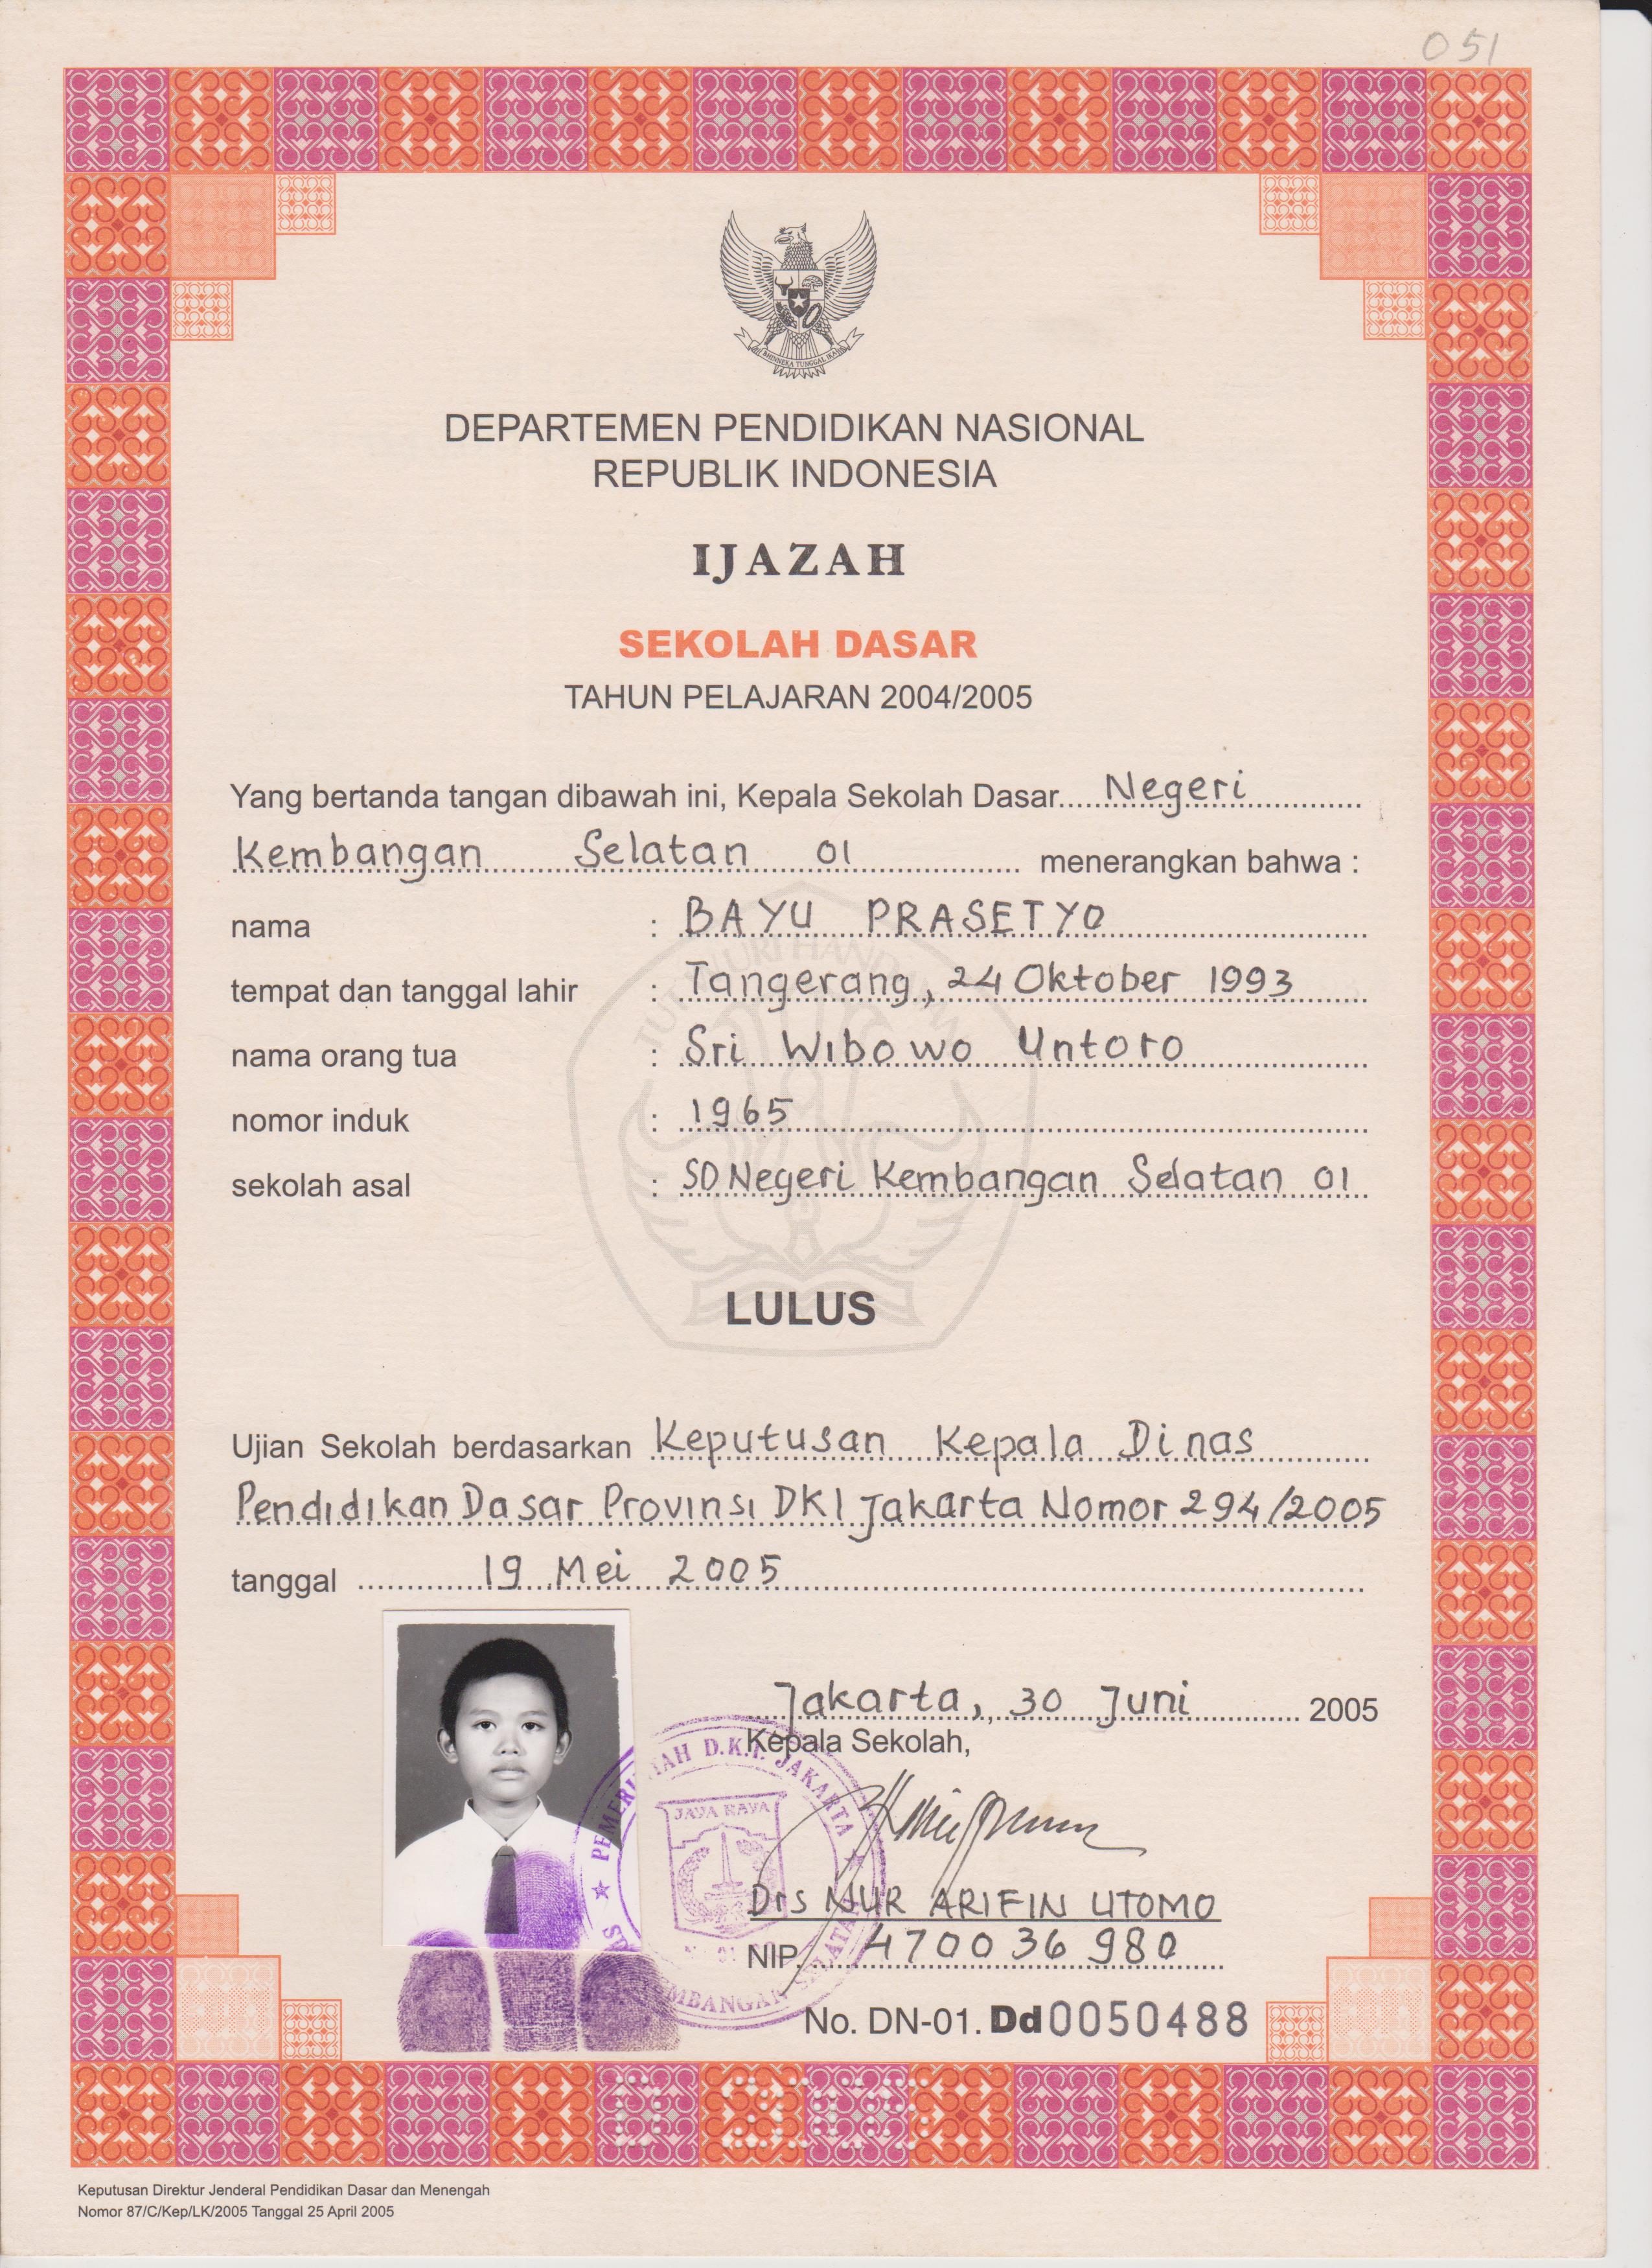 051
BHINNEKA TUNGGAL IKA
DEPARTEMEN PENDIDIKAN NASIONAL
REPUBLIK INDONESIA
IJAZAH
SEKOLAH DASAR
TAHUN PELAJARAN 2004/2005
Yang bertanda tangan dibawah ini, Kepala Sekolah Dasar Negeri
Kembangan Selatan 01 menerangkan bahwa :
nama : BAYU PRASETYO
tempat dan tanggal lahir : Tangerang, 24 Oktober 1993
nama orang tua : Sri Wibowo Untoro
nomor induk : 1965
sekolah asal : SD Negeri Kembangan Selatan 01
TUT WURI HANDAYANI
LULUS
Ujian Sekolah berdasarkan Keputusan Kepala Dinas
Pendidikan Dasar Provinsi DKI Jakarta Nomor 294/2005
tanggal 19 Mei 2005
Jakarta, 30 Juni 2005
Kepala Sekolah,
PEMERINTAH D.K.I. JAKARTA
JAYA RAYA
KEMBANGAN SELATAN
Drs NUR ARIFIN UTOMO
NIP. 470036980
No. DN-01. Dd 0050488
Keputusan Direktur Jenderal Pendidikan Dasar dan Menengah
Nomor 87/C/Kep/LK/2005 Tanggal 25 April 2005